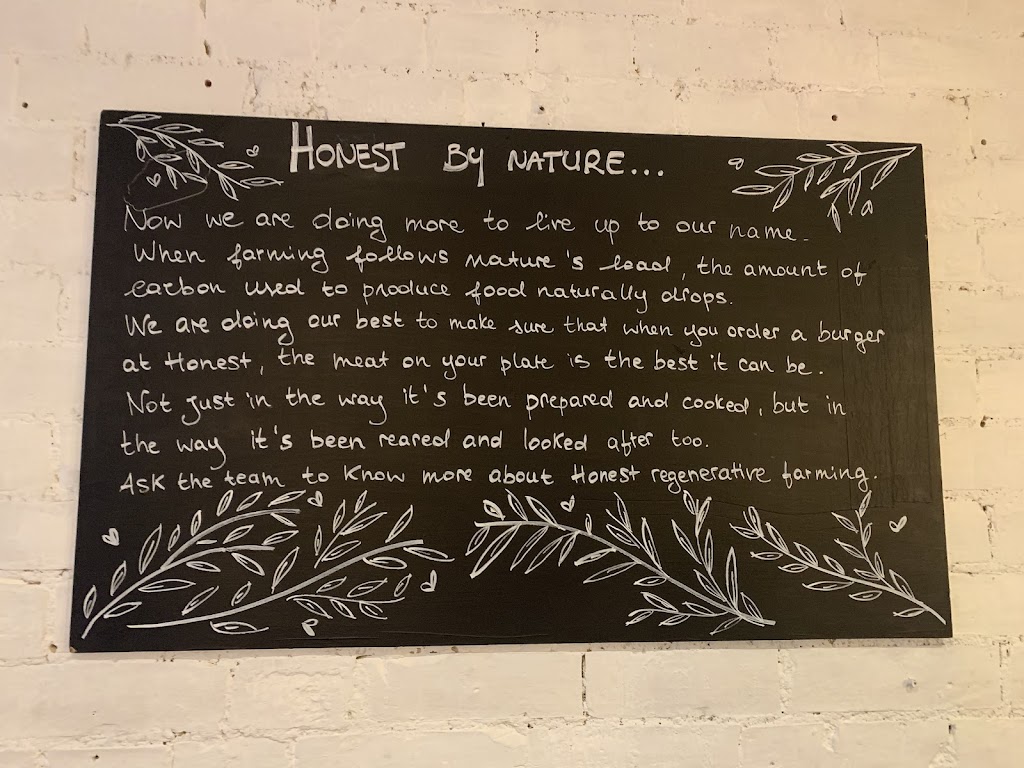 HONEST BY NATURE...
Now we are doing more to live up to our name.
When farming follows nature's lead, the amount of
carbon used to produce food naturally drops.
We are doing our best to make sure that when you order a burger
at Honest, the meat on your plate is the best it can be.
Not just in the way it's been prepared and cooked, but in
the way it's been reared and looked after too.
Ask the team to know more about Honest regenerative farming.